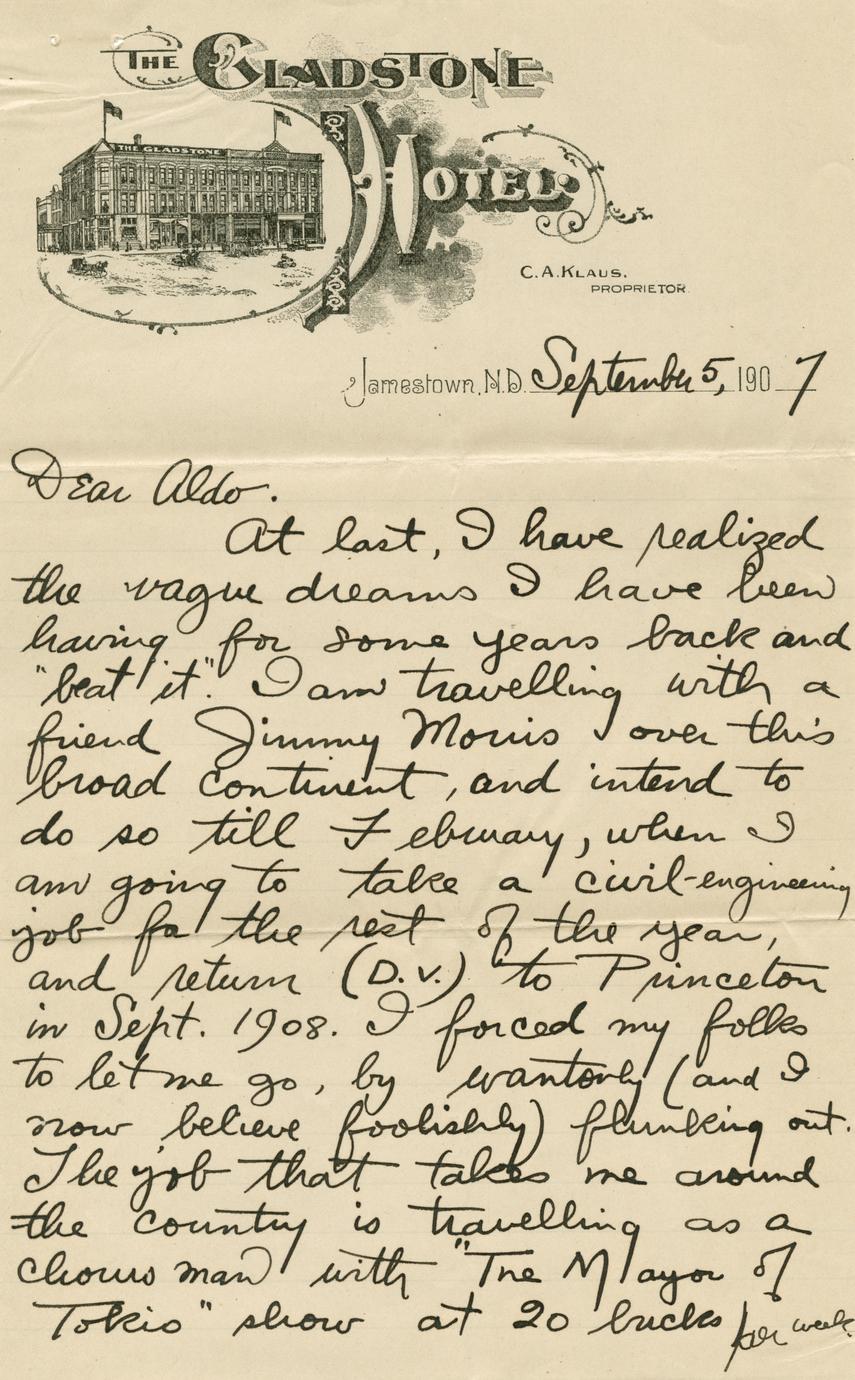 THE GLADSTONE
THE GLADSTONE
HOTEL.
C. A. KLAUS.
PROPRIETOR.
Jamestown, N.D. September 5, 1907
Dear Aldo.
At last, I have realized
the vague dreams I have been
having for some years back and
"beat it". I am travelling with a
friend Jimmy Morris over this
broad continent, and intend to
do so till February, when I
am going to take a civil-engineering
job for the rest of the year,
and return (D.V.) to Princeton
in Sept. 1908. I forced my folks
to let me go, by wantonly (and I
now believe foolishly) flunking out.
The job that takes me around
the country is travelling as a
chorus man with "The Mayor of
Tokio" show at 20 bucks per week